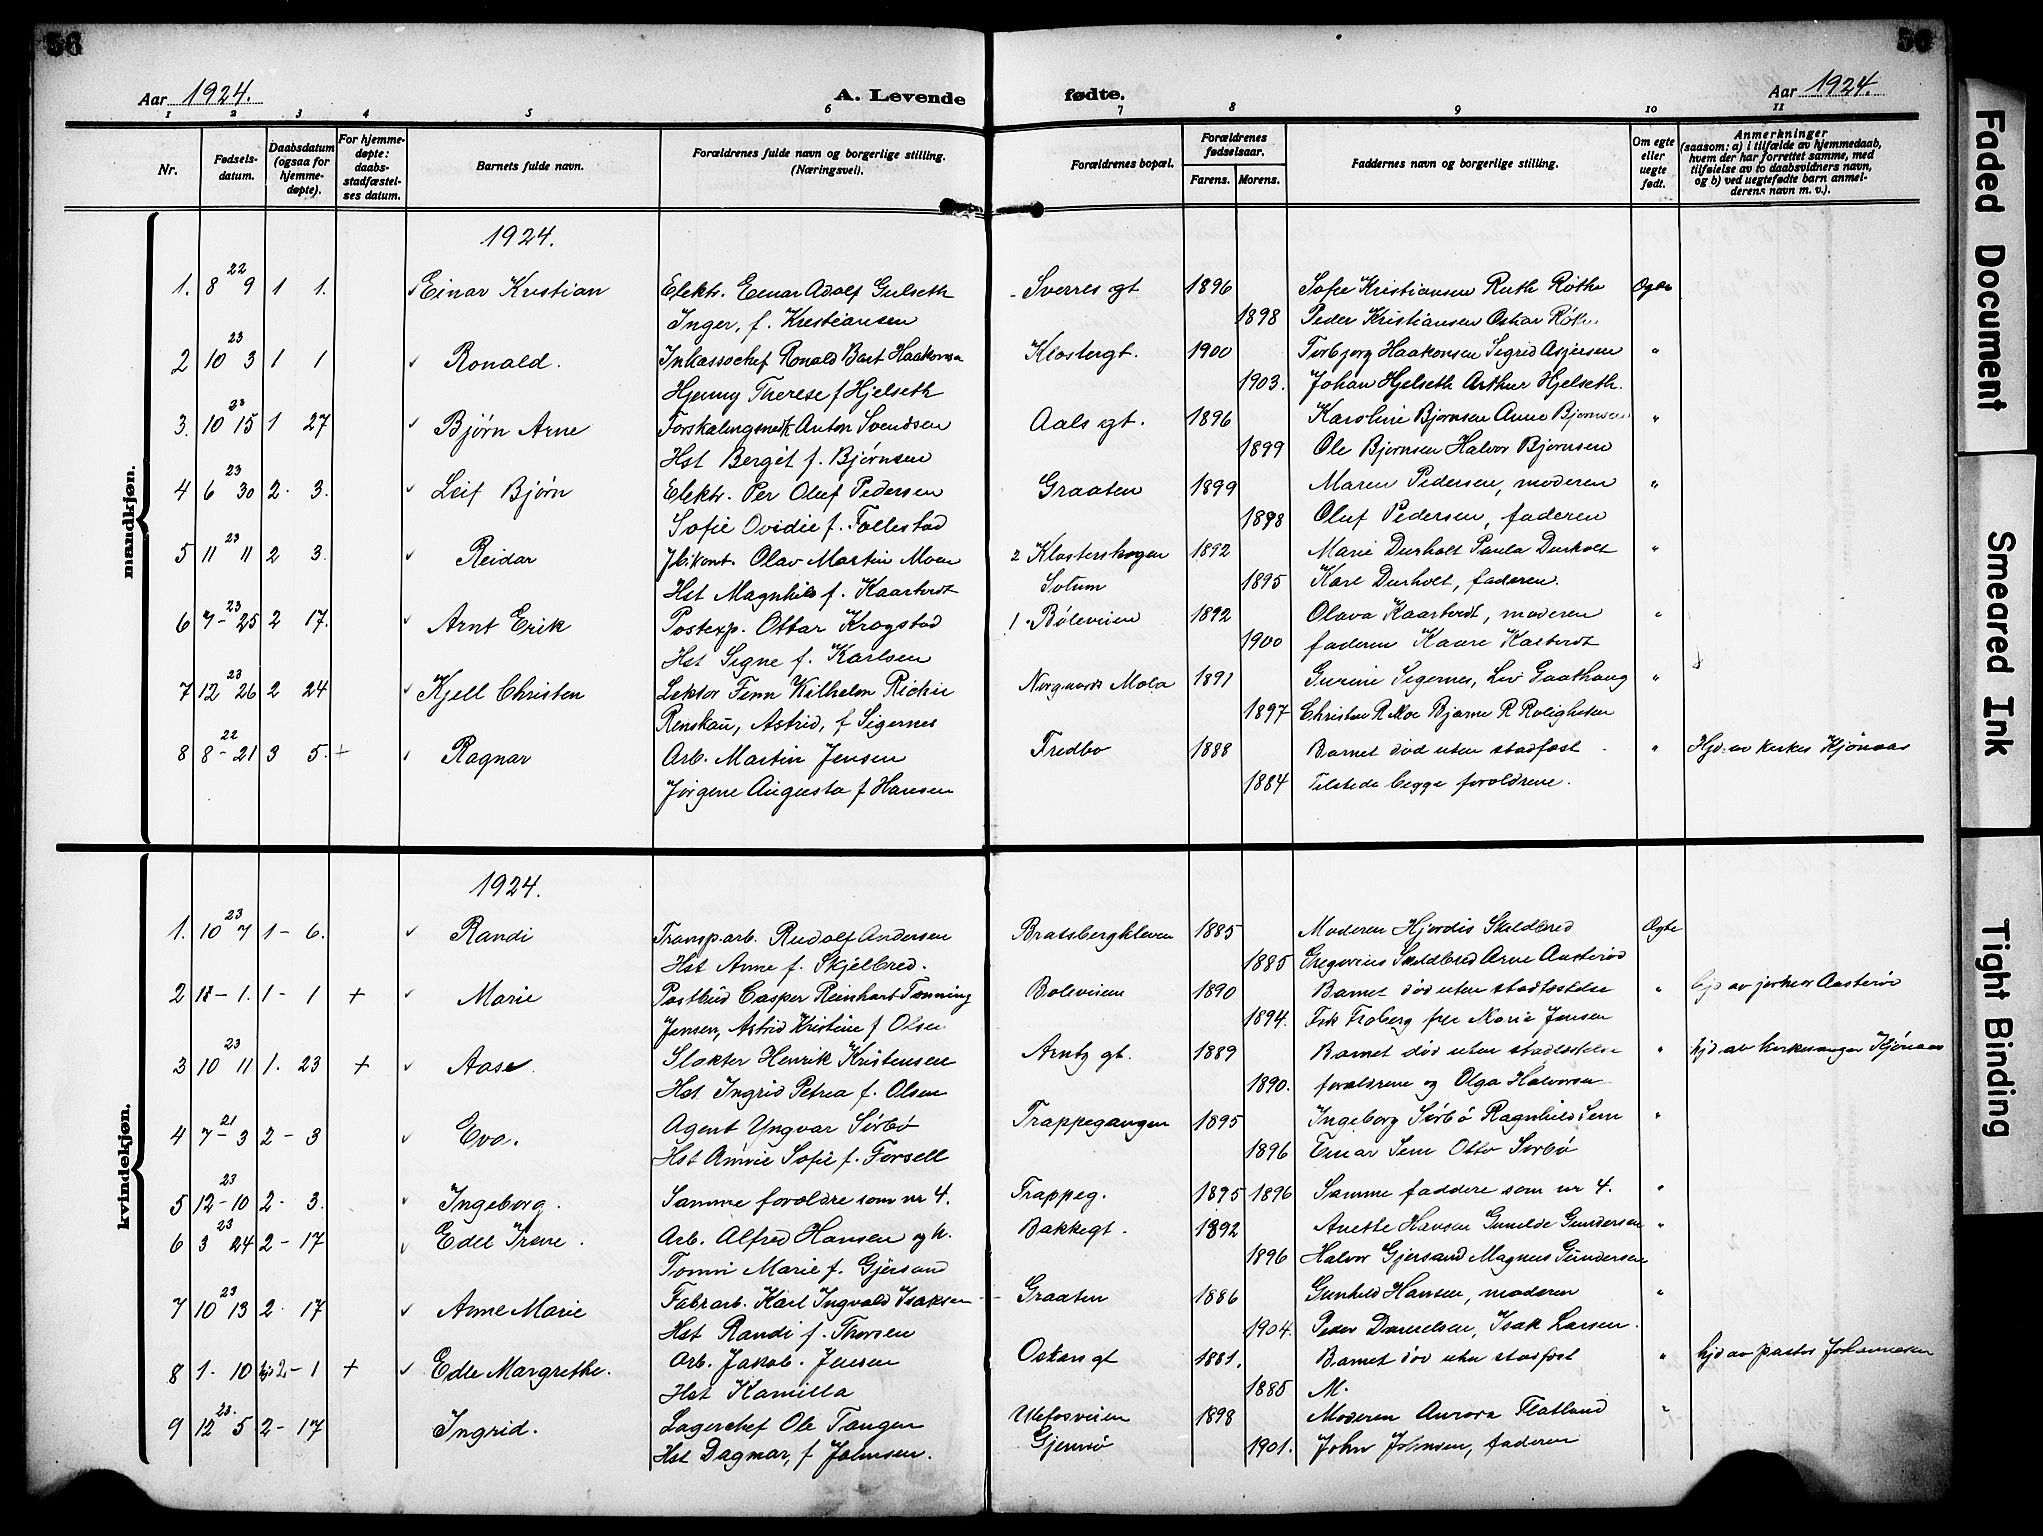 56
56
Aar 1924.
A. Levende fødte.
Aar 1924.
1 2 3 4 5 6 7 8 9 10 11
Nr.
Fødsels-
datum.
Daabsdatum
(ogsaa for
hjemme-
døpte).
For hjemme-
døpte:
daabs-
stadfæstel-
ses datum.
Barnets fulde navn.
Forældrenes fulde navn og borgerlige stilling.
(Næringsvei).
Forældrenes bopæl.
Forældrenes
fødselsaar.
Farens. Morens.
Faddernes navn og borgerlige stilling.
Om egte
eller
uegte
født.
Anmerkninger
(saasom: a) i tilfælde av hjemmedaab,
hvem der har forrettet samme, med
tilføielse av to daabsvidners navn,
og b) ved uegtefødte barn anmel-
derens navn m. v.).
mandkjøn.
1924.
1. 8 22 9 1 1. Einar Kristian Elektr. Einar Adolf Gulseth Sverres gt 1896 Sofie Kristiansen Ruth Røthe Egte
Inger, f. Kristiansen 1898 Peder Kristiansen Oskar
2 10 23 3 1 1 Ronald. Inkassochef Ronald Bart Haakonsen Klostergt. 1900 Torbjorg Haakonsen Sigrid Asjersen "
Hjenny Therese f Hjelseth 1903. Johan Hjelseth Arthur Hjelseth.
3. 10 23 15 1 27 Bjørn Arne Anton Svendsen Aals gt. 1896 Karoline Bjørnsen Anne Bjørnsen "
Hst Bergit f. Bjørnsen 1899 Ole Bjørnsen Halvor Bjørnsen
4 6 23 30 2. 3. Leif Bjørn Elektr. Per Oluf Pedersen Graaten 1899 Maren Pedersen, moderen "
Sofie Ovidie f. Follestad 1898 Oluf Pedersen, faderen
5 11 23 11 2 3. Reidar Olav Martin Moen 2 Klosterskogen 1892 Marie Durholt Paula Durholt "
Hst Magnhild f. Kaartvedt Solum 1895 Karl Durholt, faderen.
6 7-23 25 2 17. Arnt Erik Postexp. Ottar Krogstad 1 Bøleveien 1892 Olava Kaartvedt, moderen "
Hst Signe f. Karlsen 1900 faderen Kaare Kaartvedt
7 12 23 26 2 24 Kjell Christen Lektor Finn Wilhelm Nergaards Mola 1891 "
Renskau, Astrid, f Sigernes 1897 Christen R Moe Bjarne R Roligheten
8 8-22 21 3 5. + Ragnar Arb. Martin Jensen Fredbo 1888 Barnet død uten stadfæst " Hjd. av kirkes Kjønaas
Jørgine Augusta f Hansen 1884 Tilstede begge forældrene.
kvindekjøn.
1924.
1. 10 23 7 1- 6. Randi Transp.arb. Rudolf Andersen Bratsbergkleven 1885 Moderen Hjordis Skeldbred Egte
Hst Anne f. Skjelbred. 1885 Gregorius Skeldbred Arne Austerød
2 - 1. 1- 1 + Marie Postbud Casper Reinhart Tønning Boleveien 1890 Barnet død uten stadfæstelse " hjd av jormor Aasterød
Jensen, Astrid Kristine f Olsen 1894. Frk Froberg frk Marie Jensen
3 10 23 11 1. 23 + Aase. Slakter Henrik Kristensen Arntz gt. 1889 Barnet død uten stadfæstelse " hjd av kirkesanger Kjønaas
Hst Ingrid Petrea f. Olsen 1890. forældrene og Olga Halvorsen
4 7-21 3 2- 3 Eva. Agent Yngvar Sørbø Trappegangen 1895 Ingeborg Sørbø Ragnhild Sem "
Hst Annie Sofie f. Forsell 1896 Einar Sem Otto Sørbø
5 12-23 10 2- 3. Ingeborg. Samme forældre som nr 4. Trappeg. 1895 1896 Samme faddere som nr 4. "
6 3 23 24 2- 17 Edel Irene. Arb. Alfred Hansen og h. Bakkegt. 1892 Anette Hansen Gunilde Gundersen "
Tomni Marie f. Gjersand 1896 Halvor Gjersand Magnus Gundersen
7 10 23 13 2. 17 Anne Marie Fabr.arb. Karl Ingvald Isaksen Graaten 1886 Gunhild Hansen, moderen "
Hst Randi f. Thorsen 1904. Peder Danielsen, Isak Larsen.
8 1. 10 hjd 2- 1 + Edle Margrethe. Arb. Jakob. Jensen Oskars gt 1881. Barnet død uten stadfæst " hjd av pastor Johannesen
Hst Kamilla 1885 M.
9 12 23. 5 2- 17 Ingrid. Lagerchef Ole Tangen Ulefosveien 1898 Moderen Aurora Flatland "
Hst Dagmar, f Johnsen. Gjemsø 1901. John Johnsen, faderen
Faded Document
Smeared Ink
Tight Binding